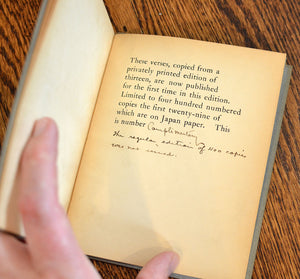 These verses, copied from a
privately printed edition of
thirteen, are now published
for the first time in this edition.
Limited to four hundred numbered
copies the first twenty-nine of
which are on Japan paper. This
is number Complimentary
The regular edition of 400 copies
was not issued.